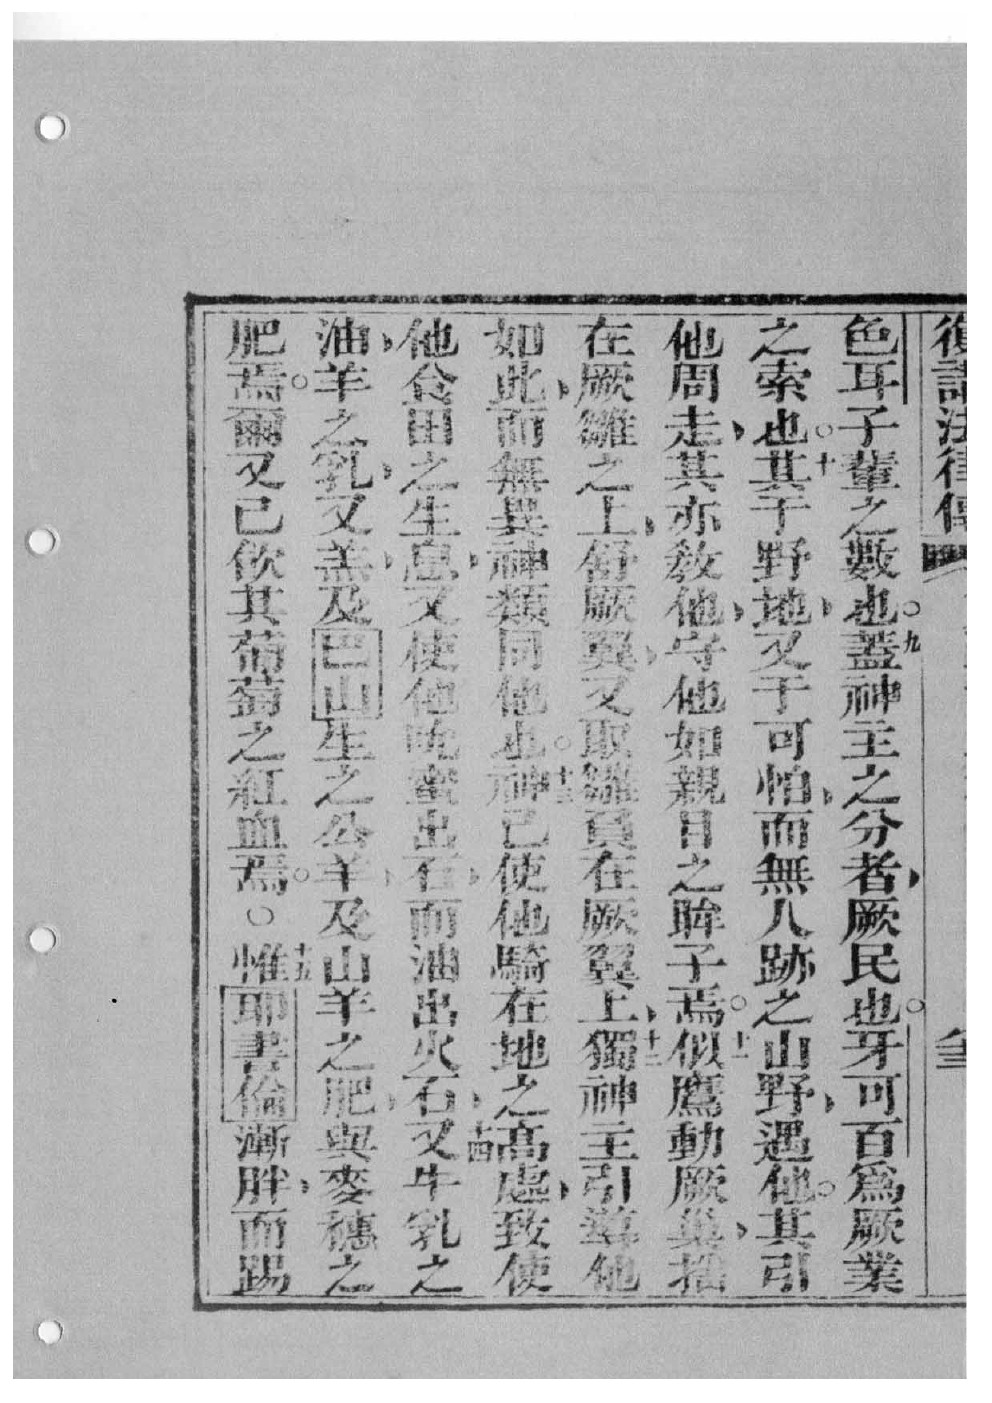 復講法律傳
色耳子輩之數也。九蓋神主之分者、厥民也。牙可百爲厥業
之索也。十其于野地、又于可怕、而無人跡之山野、遇他。其引
他周走、其亦敎他、守他如親目之眸子焉。十一似鷹動厥巢、
在厥雛之上、舒厥翼、又取雛負在厥翼上、十二獨神主引導他
如此、而無異神類同他也。十三神已使他騎在地之高處、致使
他食田之生息、又使他吮蜜出石、而油出火石、十四又牛乳之
油、羊之乳、又羔、及巴山生之公羊、及山羊之肥、與麥穗之
肥焉。爾又已飲其葡萄之紅血焉。○十五惟耶書倫漸胖、而踢